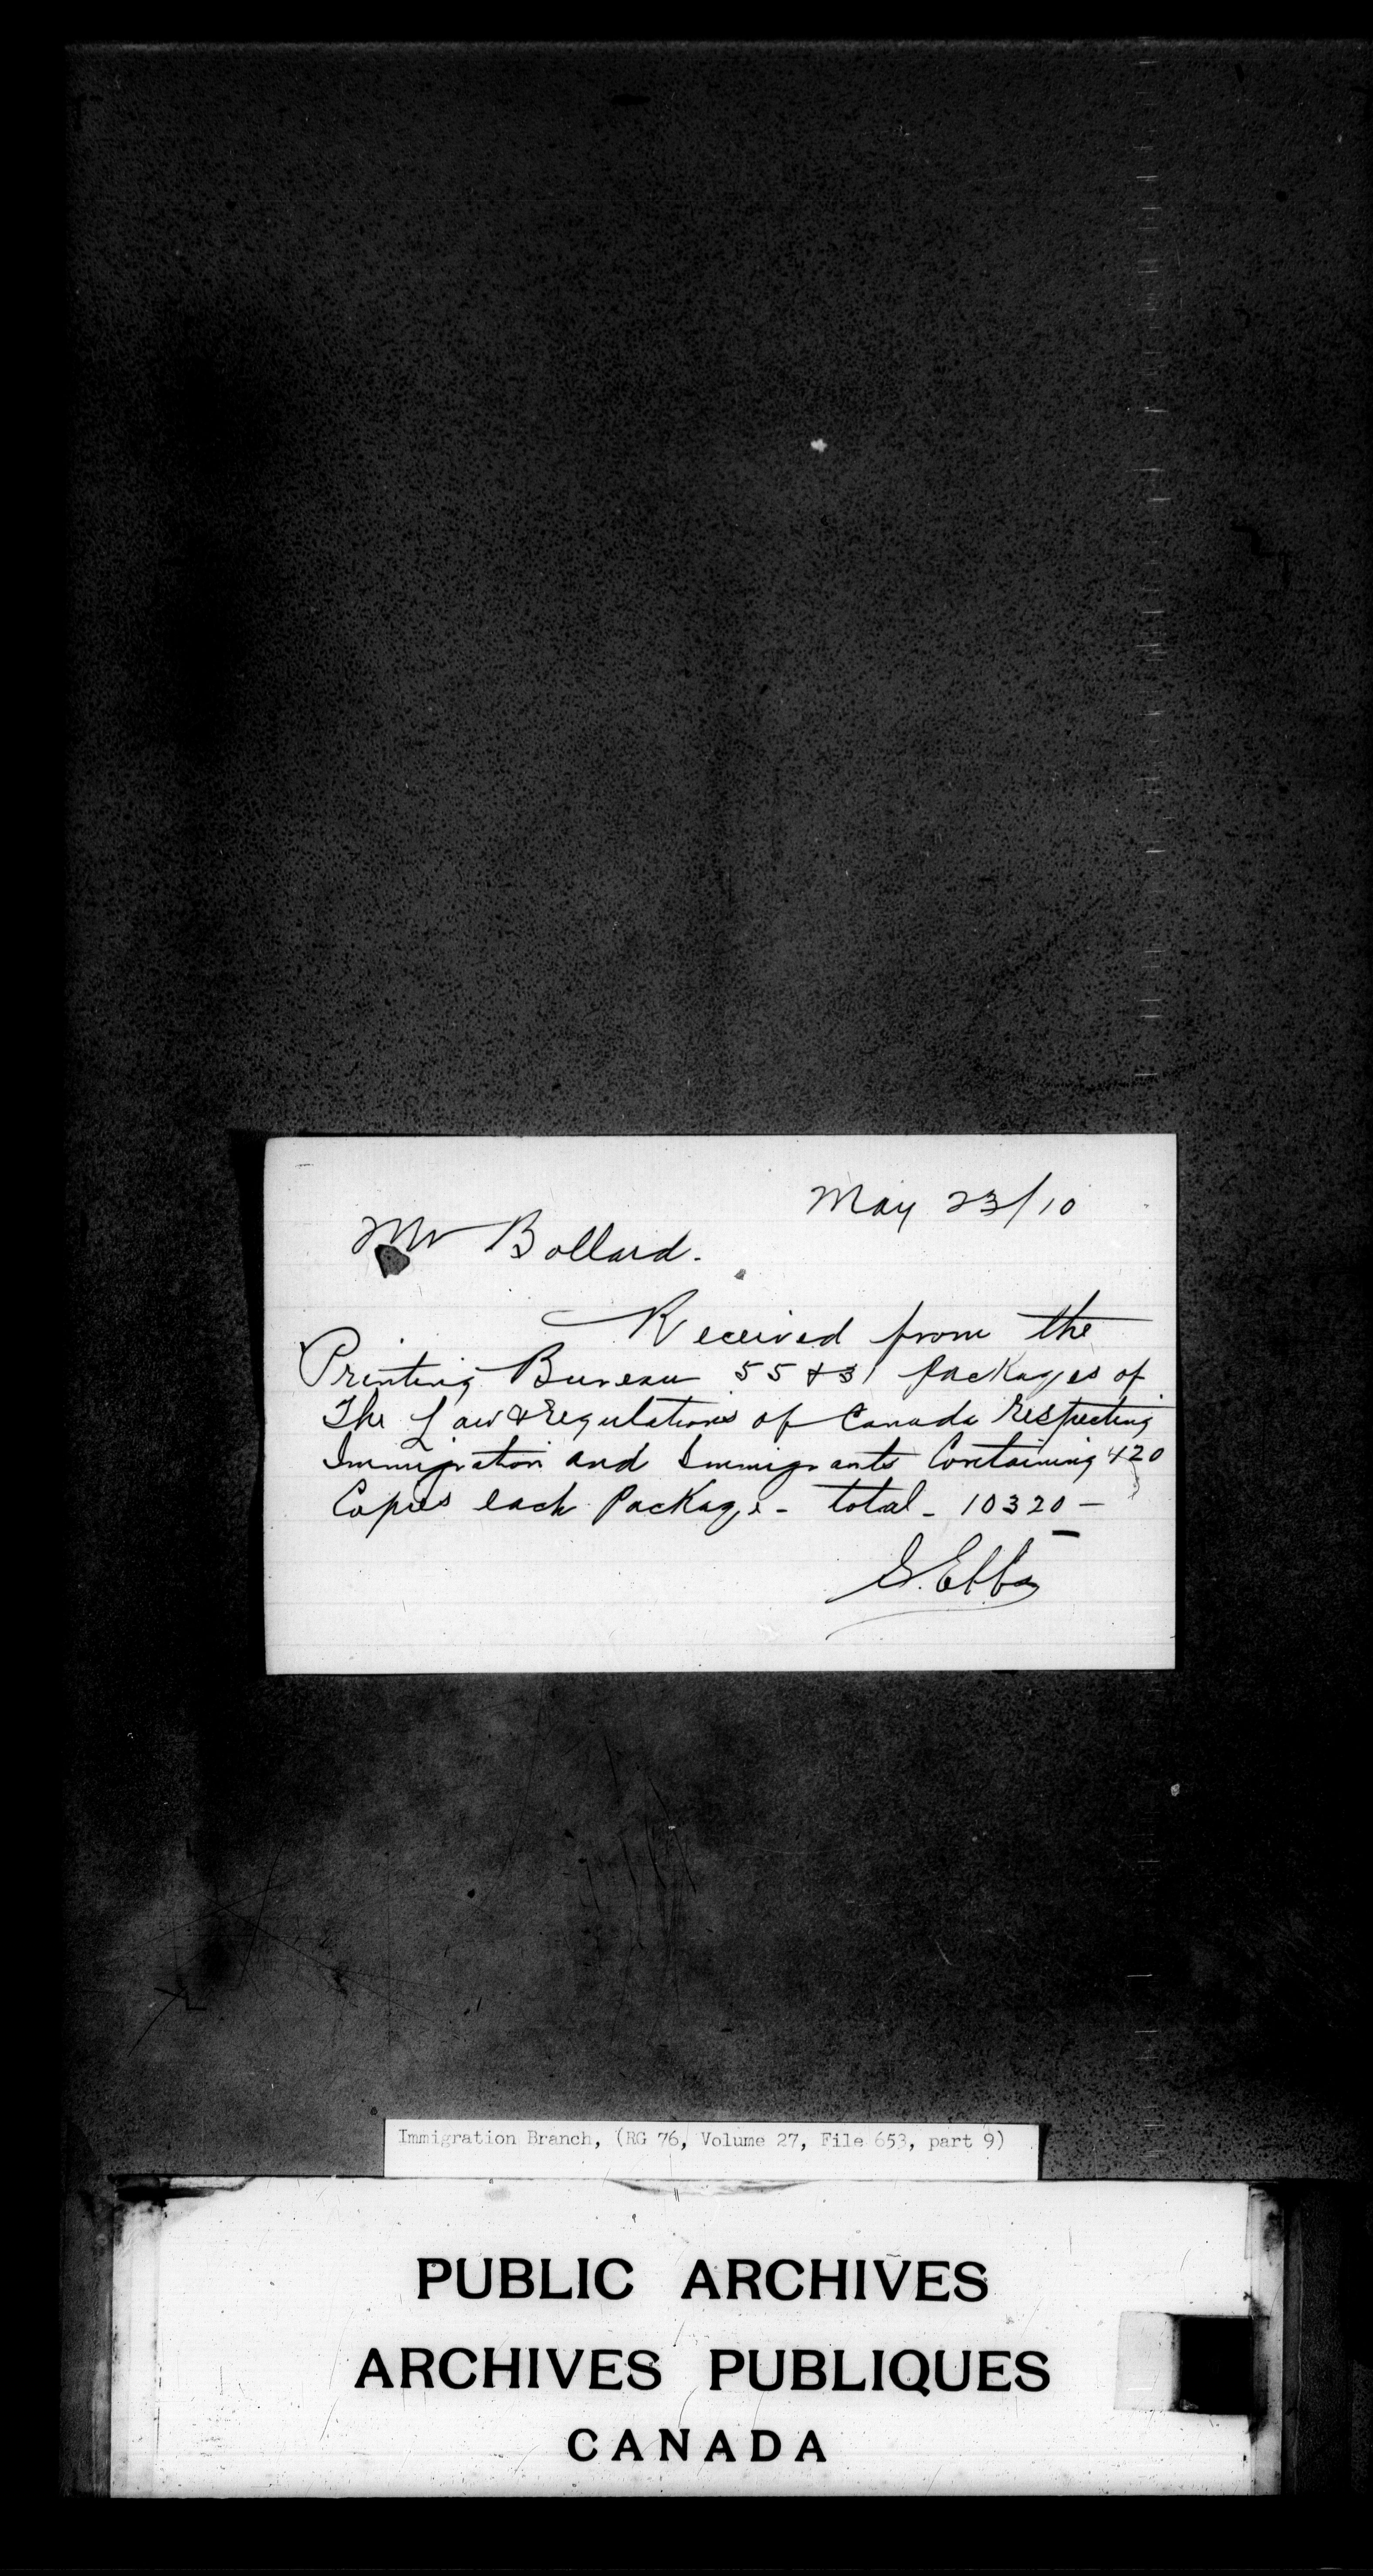 May 23/10
Mr Bollard.
Received from the
Printing Bureau 55 & 31 packages of
The Law & Regulations of Canada Respecting
Immigration and Immigrants Containing 120
Copies each Package - total - 10320 -
Immigration Branch, (RG 76, Volume 27, File 653, part 9)
PUBLIC ARCHIVES
ARCHIVES PUBLIQUES
CANADA